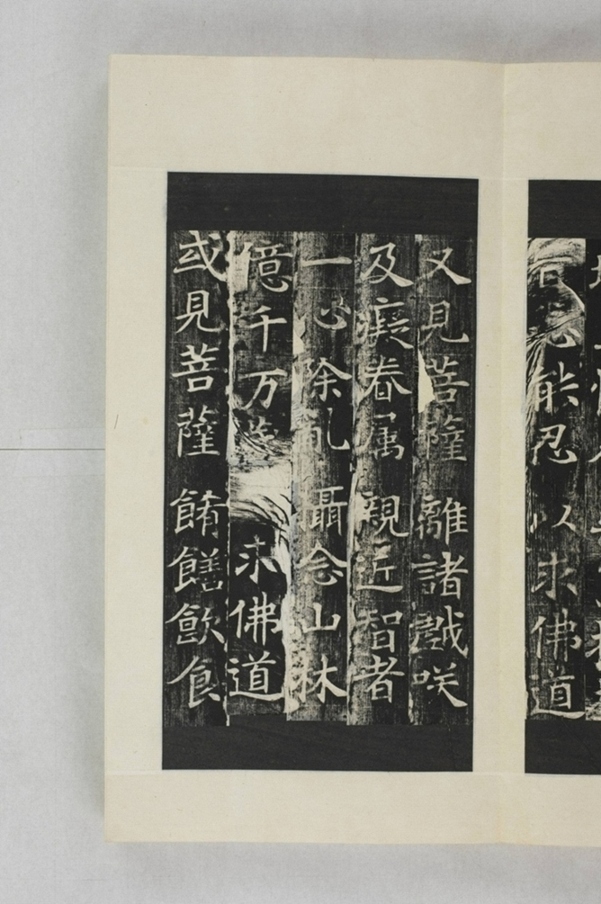 能忍 以求佛道
又見菩薩 離諸戱咲
及癡眷属 親近智者
一心除乱 攝念山林
億千万 求佛道
或見菩薩 餚饍飲食